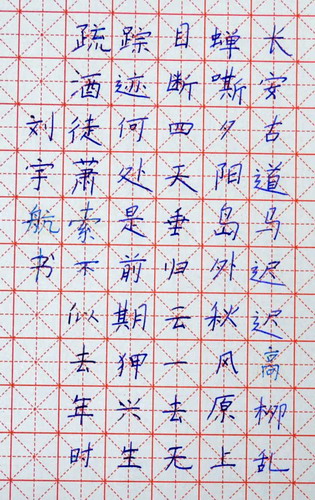 长安古道马迟迟高柳乱
蝉嘶夕阳岛外秋风原上
目断四天垂归云一去无
踪迹何处是前期狎兴生
疏酒徒萧索不似去年时
刘宇航书